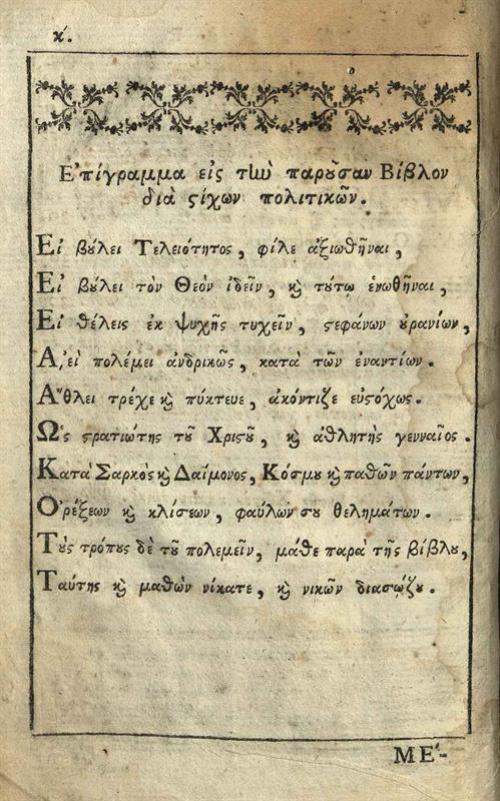 κ΄.
Ε᾽πίγραμμα εἰς τὴν παροῦσαν Βίβλον
διὰ ςίχων πολιτικῶν.
Εἰ βούλει Τελειότητος, φίλε ἀξιωθῆναι,
Εἰ βούλει τὸν Θεὸν ἰδεῖν, ϗ τούτῳ ἑνωθῆναι,
Εἰ θέλεις ἐκ ψυχῆς τυχεῖν, ςεφάνων οὐρανίων,
Α᾽εὶ πολέμει ἀνδρικῶς, κατὰ τῶν ἐναντίων.
Α῎θλει τρέχε ϗ πύκτευε, ἀκόντιζε εὐςόχως.
Ω῾ς ςρατιώτης τοῦ Χριςοῦ, ϗ ἀθλητὴς γενναῖος.
Κατὰ Σαρκὸς ϗ Δαίμονος, Κόσμου ϗ παθῶν πάντων,
Ο᾽ρέξεων ϗ κλίσεων, φαύλων σου θελημάτων.
Τοὺς τρόπους δὲ τοῦ πολεμεῖν, μάθε παρὰ τῆς βίβλου,
Ταύτης ϗ μαθὼν νίκατε, ϗ νικῶν διασώζου.
ΜΕ΄-